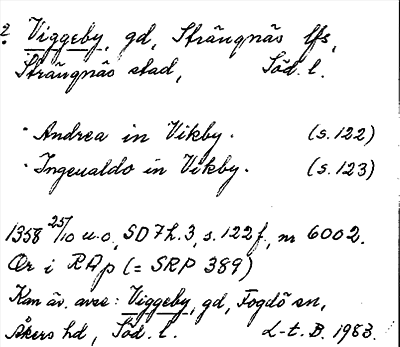 ? Viggeby, gd, Strängnäs lfs,
Strängnäs stad, Söd. l.
· Andrea in Vikby. (s. 122)
· Ingeualdo in Vikby. (s. 123)
1358 25/10 u.o., SD 7 h. 3, s. 122 f., nr 6002.
Or i RAp (= SRP 389)
Kan äv. avse: Viggeby, gd, Fogdö sn,
Åkers hd, Söd. l. L-t. B. 1983.